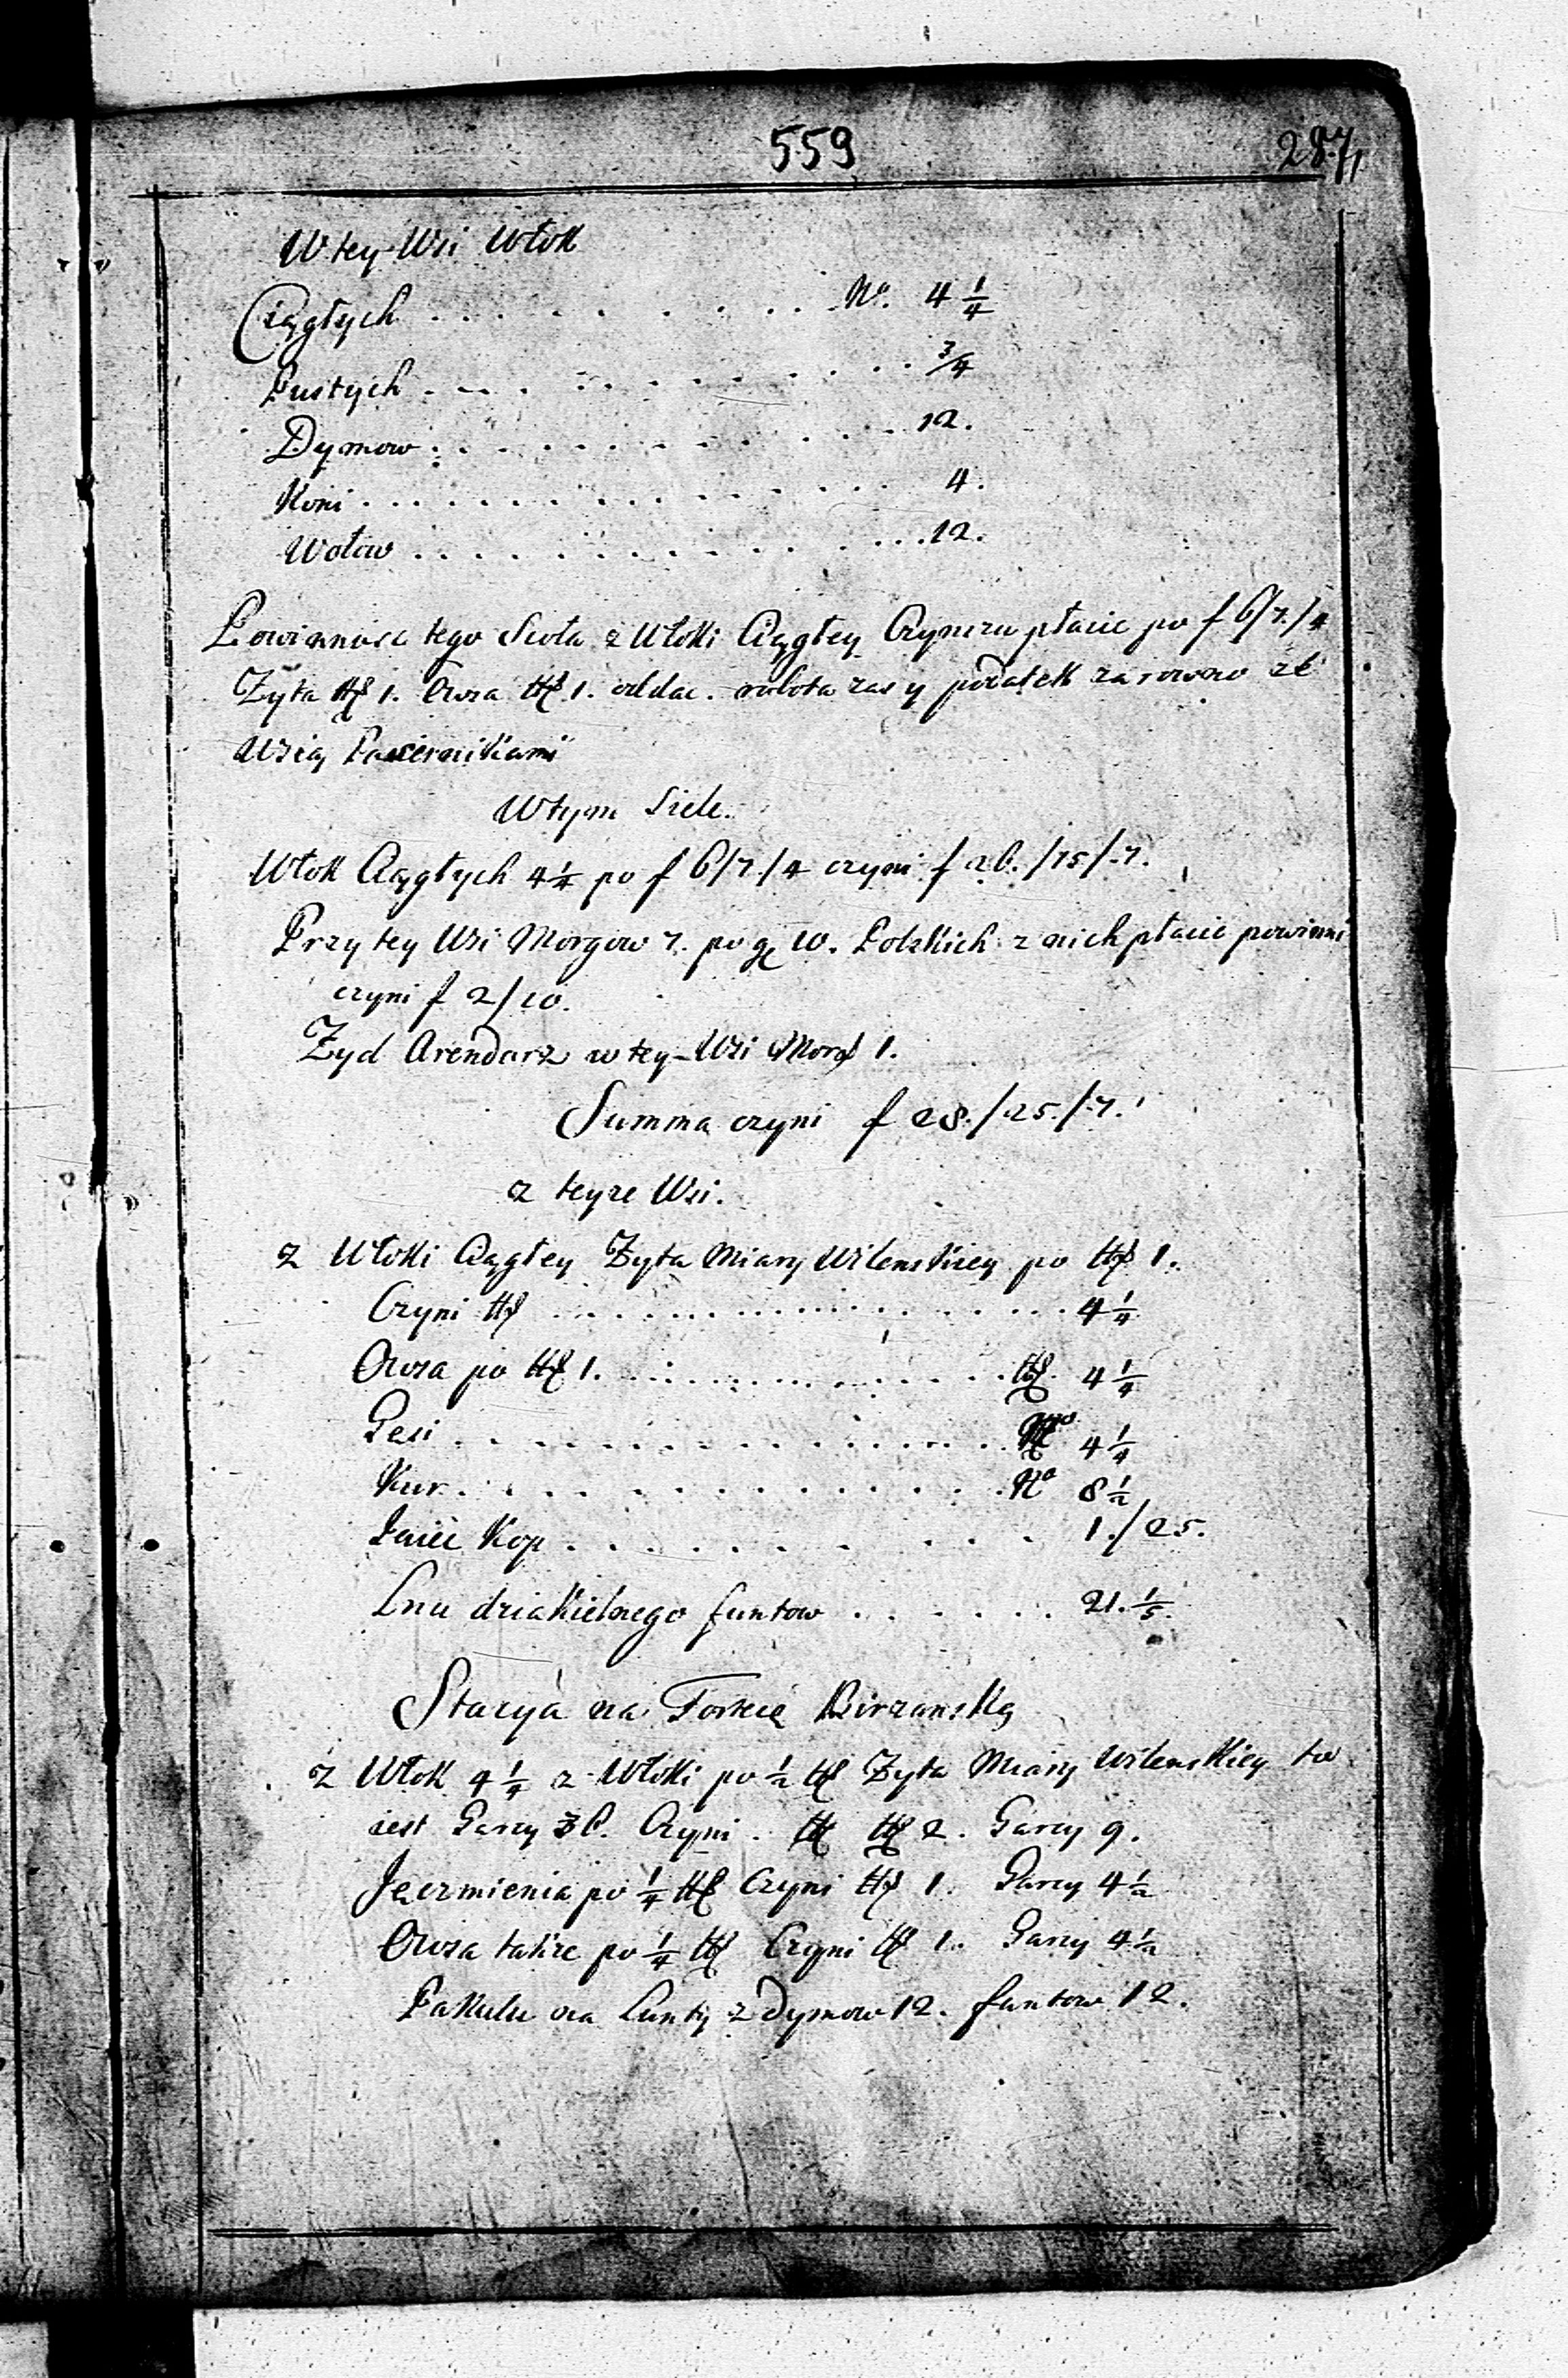 559
287
W tey Wsi Włok
Ciągłych . . . . . . . . . . No. 4 1/4
Pustych . . . . . . . . . . 3/4
Dymow . . . . . . . . . . 12.
Koni . . . . . . . . . . 4.
Wołow . . . . . . . . . . 12.
Powinnosc tego Sioła z Włoki Ciągłey Czynszu płacic po f 6/7/4
Żyta 1. Owsa 1. oddac. robota zas y podatek zarowno ze
Wsią Paciernikami
W tym Siele.
Włok Ciągłych 4 1/4 po f 6/7/4 czyni f 26./15/.7.
Przy tey Wsi Morgow 7. po g 10. Polskich z nich płacic powinni
czyni f 2/10.
Żyd Arendarz w tey Wsi Morg 1.
Summa czyni f 28./25./.7.
z teyze Wsi.
z Włoki Ciągłey Żyta Miary Wilenskiey po 1.
Czyni . . . . . . . . . . 4 1/4
Owsa po 1. . . . . . . . . . 4 1/4
Gęsi . . . . . . . . . . No 4 1/4
Kur . . . . . . . . . . No 8 1/2
Jaiec Kop . . . . . . . . . . 1./25.
Lnu dziakielnego funtow . . . . . . 21. 1/5.
Stacya na Fortecę Birzanską
z Włok 4 1/4 z Włoki po 1/2 Żyta Miary Wilenskiey to
iest Garcy 36. Czyni 2. Garcy 9.
Jęczmienia po 1/4 Czyni 1. Garcy 4 1/2
Owsa takze po 1/4 Czyni 1. Garcy 4 1/2
Pakułu na Lunty z Dymow 12. funtow 12.